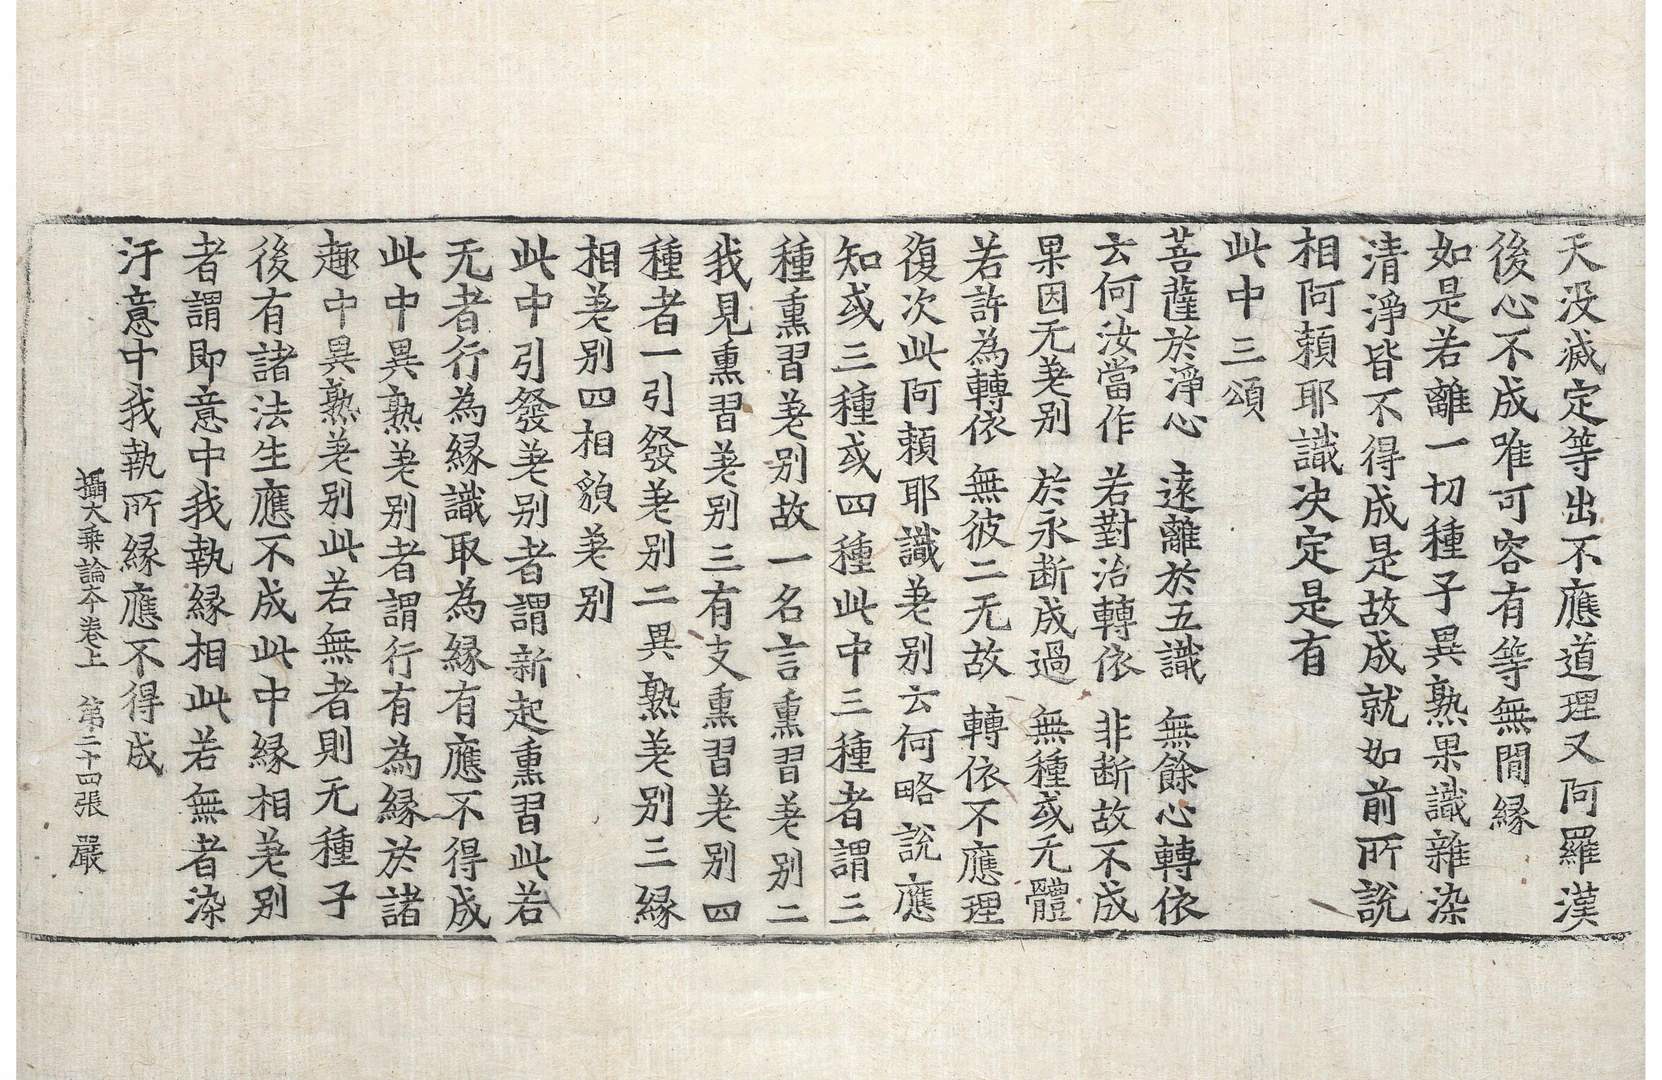 天没滅定等出不應道理又阿羅漢
後心不成唯可容有等無閒縁
如是若離一切種子異熟果識雜染
清淨皆不得成是故成就如前所説
相阿頼耶識決定是有
此中三頌
菩薩於淨心　遠離於五識　無餘心轉依
云何汝當作　若對治轉依　非断故不成
果因无差别　於永断成過　無種或无體
若許為轉依　無彼二无故　轉依不應理
復次此阿頼耶識差别云何略説應
知或三種或四種此中三種者謂三
種熏習差别故一名言熏習差别二
我見熏習差别三有支熏習差别四
種者一引發差别二異熟差别三縁
相差别四相貌差别
此中引發差别者謂新起熏習此若
无者行為縁識取為縁有應不得成
此中異熟差别者謂行有為縁於諸
趣中異熟差别此若無者則无種子
後有諸法生應不成此中縁相差别
者謂即意中我執縁相此若無者染
汙意中我執所縁應不得成
攝大乗論本卷上　第二十四張　嚴